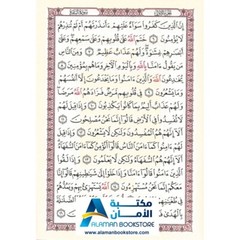 إِنَّ الَّذِينَ كَفَرُوا سَوَاءٌ عَلَيْهِمْ ءَأَنذَرْتَهُمْ أَمْ لَمْ تُنذِرْهُمْ
لَا يُؤْمِنُونَ خَتَمَ اللَّهُ عَلَى قُلُوبِهِمْ وَعَلَى سَمْعِهِمْ وَعَلَى
أَبْصَارِهِمْ غِشَاوَةٌ وَلَهُمْ عَذَابٌ عَظِيمٌ وَمِنَ النَّاسِ
مَن يَقُولُ ءَامَنَّا بِاللَّهِ وَبِالْيَوْمِ الْآخِرِ وَمَا هُم بِمُؤْمِنِينَ
يُخَادِعُونَ اللَّهَ وَالَّذِينَ ءَامَنُوا وَمَا يَخْدَعُونَ إِلَّا أَنفُسَهُمْ
وَمَا يَشْعُرُونَ فِي قُلُوبِهِم مَّرَضٌ فَزَادَهُمُ اللَّهُ مَرَضًا
وَلَهُمْ عَذَابٌ أَلِيمٌ بِمَا كَانُوا يَكْذِبُونَ وَإِذَا قِيلَ لَهُمْ
لَا تُفْسِدُوا فِي الْأَرْضِ قَالُوا إِنَّمَا نَحْنُ مُصْلِحُونَ
أَلَا إِنَّهُمْ هُمُ الْمُفْسِدُونَ وَلَكِن لَّا يَشْعُرُونَ وَإِذَا قِيلَ
لَهُمْ ءَامِنُوا كَمَا ءَامَنَ النَّاسُ قَالُوا أَنُؤْمِنُ كَمَا ءَامَنَ السُّفَهَاءُ
أَلَا إِنَّهُمْ هُمُ السُّفَهَاءُ وَلَكِن لَّا يَعْلَمُونَ وَإِذَا لَقُوا
الَّذِينَ ءَامَنُوا قَالُوا ءَامَنَّا وَإِذَا خَلَوْا إِلَى شَيَاطِينِهِمْ قَالُوا
إِنَّا مَعَكُمْ إِنَّمَا نَحْنُ
مكتبة
الأمان
ALAMAN BOOKSTORE
www.alamanbookstore.com